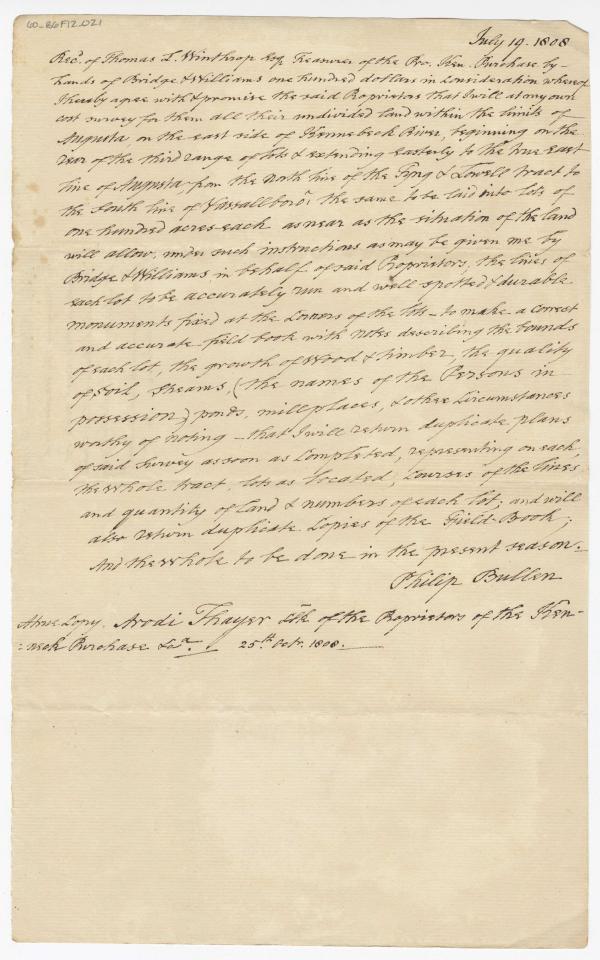 60_B6F12_021
July 19. 1808
Rec.d of Thomas L. Winthrop Esq Treasurer of the Pro. Ken. Purchase by
hands of Bridge & Williams one hundred dollars in consideration whereof
I hereby agree with & promise the said Proprietors that I will at my own
cost survey for them all their undivided land within the limits of
Augusta, on the east side of Kennebeck River, beginning on the
rear of the third range of lots & extending easterly to the true East
line of Augusta from the North line of the Tyng & Lowell tract to
the South line of Vassallboro; the same to be laid into lots of
one hundred acres each as near as the situation of the land
will allow, under such instructions as may be given me by
Bridge & Williams, in behalf of said Proprietors, the lines of
each lot to be accurately run and well spotted & durable
monuments fixed at the Corners of the lots - to make a correct
and accurate field book with notes describing the bounds
of each lot, the growth of Wood & timber, the quality
of Soil, Streams, (the names of the Persons in
possession,) ponds, mill places, & other Circumstances
worthy of noting - that I will return duplicate plans
of said Survey as soon as Completed, representing on each,
the whole tract, lots as located, Courses of the lines
and quantity of Land & numbers of each lot; and will
also return duplicate Copies of the Field-Book;
And the whole to be done in the present season.-
Philip Bullen
A true Copy. Arodi Thayer Clk of the Proprietors of the Ken-
:neck Purchase &ca. 25th Octr. 1808.